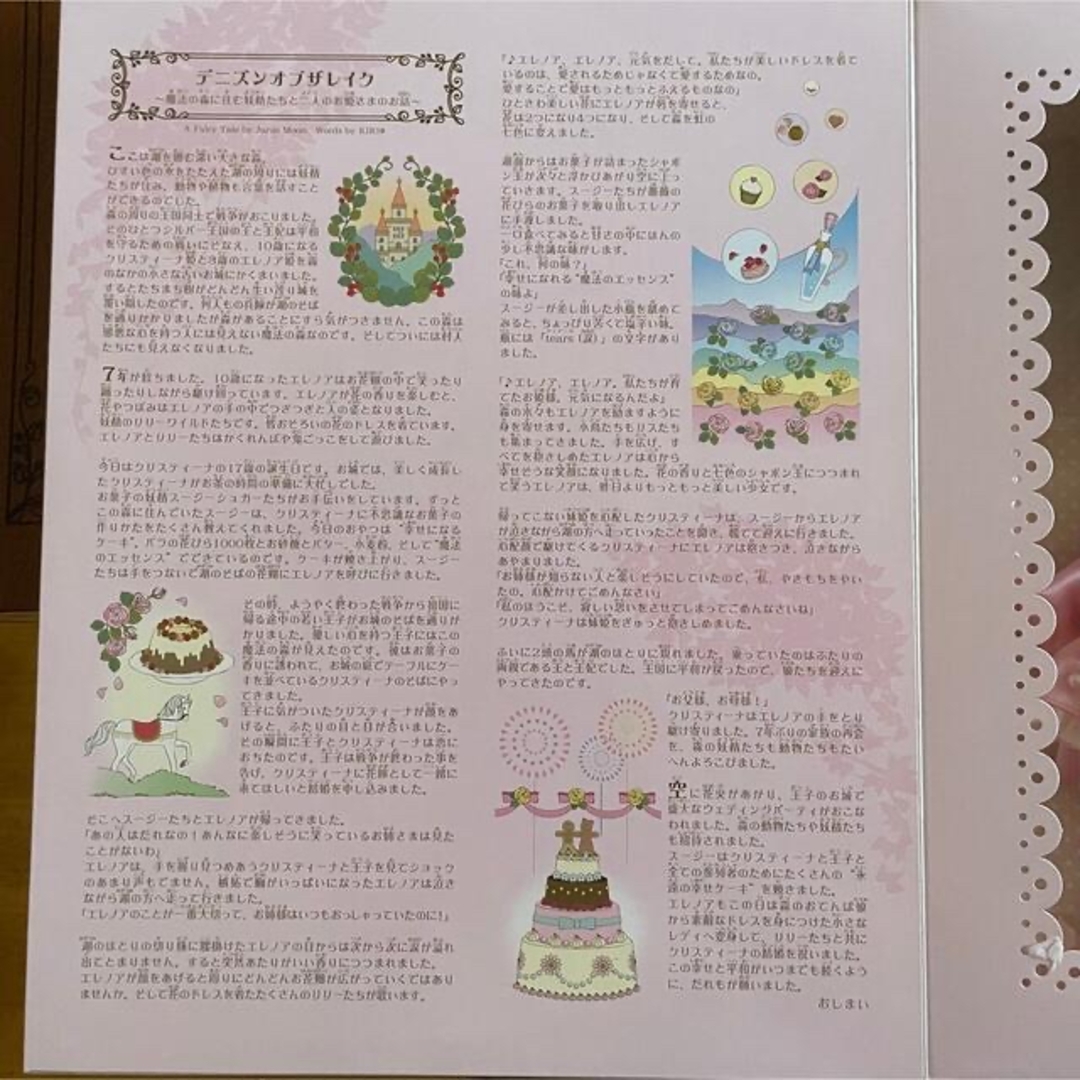 デニズンオブザレイク
～魔法の森に住む妖精たちと二人のお姫さまのお話～
A Fairy Tale by Junie Moon, Words by KIRI*
ここは湖を囲む深い大きな森。
ひすい色の水をたたえた湖の周りには妖精
たちが住み、動物や植物も言葉を話すこと
ができるのでした。
森の周りの王国同士で戦争がおこりました。
そのひとつシルバー王国の王と王妃は平和
を守るための戦いにそなえ、10歳になる
クリスティーナ姫と3歳のエレノア姫を森
のなかの小さな古いお城にかくまいました。
するとたちまち樹がどんどん生い茂り城を
覆い隠したのです。何人もの兵隊が湖のそば
を通りかかりましたが森があることにすら気がつきません。この森は
邪悪な心を持つ人には見えない魔法の森なのです。そしてついには村人
たちにも見えなくなりました。
7年が経ちました。10歳になったエレノアはお花畑の中で笑ったり
踊ったりしながら駆け回っています。エレノアが花の香りを楽しむと、
花やつぼみはエレノアの手の中でつぎつぎと人の姿となりました。
妖精のリリーワイルドたちです。皆おそろいの花のドレスを着ています。
エレノアとリリーたちはかくれんぼや鬼ごっこをして遊びました。
今日はクリスティーナの17歳の誕生日です。お城では、美しく成長し
たクリスティーナがお茶の時間の準備に大忙しでした。
お菓子の妖精スージーシュガーたちがお手伝いをしています。ずっと
この森に住んでいたスージーは、クリスティーナに不思議なお菓子の
作りかたをたくさん教えてくれました。今日のおやつは“幸せになる
ケーキ”。バラの花びら1000枚とお砂糖とバター、小麦粉、そして“魔法
のエッセンス”でできているのです。ケーキが焼き上がり、スージー
たちは手をつないで湖のそばの花畑にエレノアを呼びに行きました。
その時、ようやく終わった戦争から祖国に
帰る途中の若い王子がお城のそばを通りが
かりました。優しい心を持つ王子にはこの
魔法の森が見えたのです。彼はお菓子の
香りに誘われて、お城の庭でテーブルにケー
キを並べているクリスティーナのそばにやっ
てきました。
王子に気がついたクリスティーナが顔をあ
げると、ふたりの目と目が合いました。
その瞬間に王子とクリスティーナは恋に
おちたのです。王子は戦争が終わった事を
告げ、クリスティーナに花嫁として一緒に
来てほしいと結婚を申し込みました。
そこへスージーたちとエレノアが帰ってきました。
「あの人はだれなの！あんなに楽しそうに笑っているお姉さまは見た
ことがないわ」
エレノアは、手を握り見つめあうクリスティーナと王子を見てショック
のあまり声もでません。嫉妬で胸がいっぱいになったエレノアは泣き
ながら湖の方へ走って行きました。
「エレノアのことが一番大切って、お姉様はいつもおっしゃっていたのに！」
湖のほとりの切り株に腰掛けたエレノアの目からは次から次に涙が溢れ
出てとまりません。すると突然あたりがいい香りにつつまれました。
エレノアが顔をあげると周りにどんどんお花畑が広がっていくではあり
ませんか。そして花のドレスを着たたくさんのリリーたちが歌います。
「♪エレノア、エレノア、元気をだして。私たちが美しいドレスを着て
いるのは、愛されるためじゃなくて愛するためなの。
愛することで愛はもっともっとふえるものなの」
ひときわ美しい花にエレノアが唇を寄せると、
花は2つになり4つになり、そして森を虹の
七色に変えました。
湖面からはお菓子が詰まったシャボ
ン玉が次々と浮かびあがり空に上っ
ていきます。スージーたちが薔薇の
花びらのお菓子を取り出しエレノア
に手渡しました。
一口食べてみると甘さの中にほんの
少し不思議な味がします。
「これ、何の味？」
「幸せになれる“魔法のエッセンス”
の味よ」
スージーが差し出した小瓶を舐めて
みると、ちょっぴり苦くて塩辛い味。
瓶には「tears（涙）」の文字があり
ました。
「♪エレノア、エレノア。私たちが育
てたお姫様。元気になるんだよ」
森の木々もエレノアを励ますように
身を寄せます。小鳥たちもリスたち
も集まってきました。手を広げ、す
べてを抱きしめたエレノアは心から
幸せそうな笑顔になりました。花の香りと七色のシャボン玉につつまれ
て笑うエレノアは、昨日よりもっともっと美しい少女です。
帰ってこない妹姫を心配したクリスティーナは、スージーからエレノア
が泣きながら湖の方へ走っていったことを聞き、慌てて迎えに行きました。
心配顔で駆けてくるクリスティーナにエレノアは抱きつき、泣きながら
あやまりました。
「お姉様が知らない人と楽しそうにしていたので、私、やきもちをやい
たの。心配かけてごめんなさい」
「私のほうこそ、寂しい思いをさせてしまってごめんなさいね」
クリスティーナは妹姫をぎゅっと抱きしめました。
ふいに2頭の馬が湖のほとりに現れました。乗っていたのはふたりの
両親である王と王妃でした。王国に平和が戻ったので、娘たちを迎えに
やってきたのです。
「お父様、お母様！」
クリスティーナはエレノアの手をとり
駆け寄りました。7年ぶりの家族の再会
を、森の妖精たちも動物たちもたい
へんよろこびました。
空に花火があがり、王子のお城で
盛大なウェディングパーティがおこな
われました。森の動物たちや妖精たち
も招待されました。
スージーはクリスティーナと王子と
全ての参列者のためにたくさんの“永
遠の幸せケーキ”を焼きました。
エレノアもこの日は森のおてんば娘
から素敵なドレスを身につけた小さな
レディへ変身して、リリーたちと共に
クリスティーナの結婚を祝いました。
この幸せと平和がいつまでも続くよう
に、だれもが願いました。
おしまい